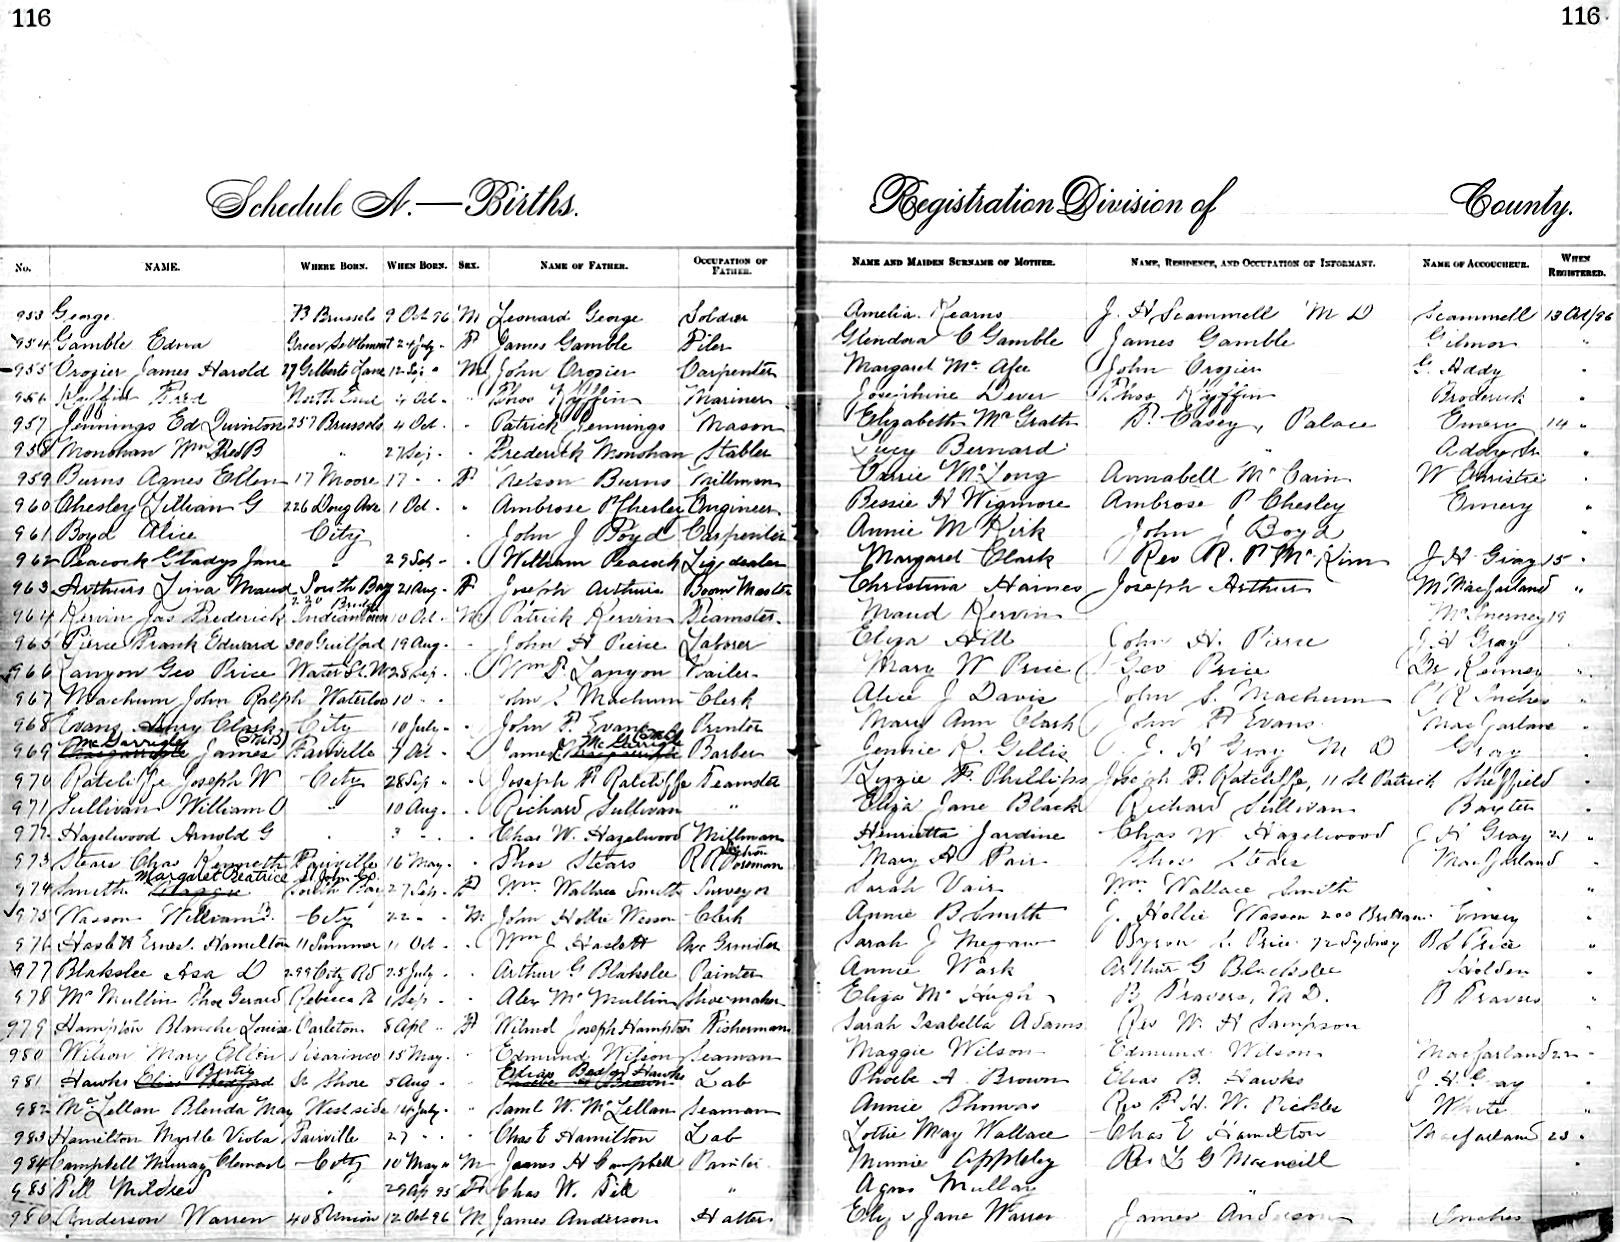 116
116
Schedule A.—Births.
Registration Division of County.
No. NAME. WHERE BORN. WHEN BORN. SEX. NAME OF FATHER. OCCUPATION OF FATHER. NAME AND MAIDEN SURNAME OF MOTHER. NAME, RESIDENCE, AND OCCUPATION OF INFORMANT. NAME OF ACCOUCHEUR. WHEN REGISTERED.
953 George 73 Brussels 9 Oct 96 M Leonard George Soldier Amelia Kearns J. H Scammell M D Scammell 13 Oct/96
954 Gamble Edna Green Settlement 24 July - F James Gamble Filer Glendora C Gamble James Gamble Gilmor "
955 Crozier James Harold 27 Gilberts Lane 12 Sep " M John Crozier Carpenter Margaret Mc Afee John Crozier G. Addy "
956 Kyffin Fred North End 4 Oct - " Thos Kyffin Mariner Josephine Dever Thos Kyffin Broderick "
957 Jennings Ed Quinton 257 Brussels 4 Oct - " Patrick Jennings Mason Elizabeth McGrath P. Casey, Palace Emery 14 "
958 Monohan Wm Fred B " 27 Sep - " Frederick Monohan Stabler Lucy Bernard " Addy Sr "
959 Burns Agnes Ellen 17 Moore 17 - - F Nelson Burns Millman Carrie McLong Annabell McCain W Christie "
960 Chesley Lillian G 226 Doug Ave 1 Oct - " Ambrose P Chesley Engineer Bessie H Wigmore Ambrose P Chesley Emery "
961 Boyd Alice City " John J Boyd Carpenter Annie M Kirk John J Boyd "
962 Peacock Gladys Jane " 29 Sep - " William Peacock Lig dealer Margaret Clark Rev R. P McKim J H Gray 15 "
963 Arthurs Lina Maud South Bay 21 Aug - F Joseph Arthurs Boom Master Christina Haines Joseph Arthurs M MacFarland "
964 Kervin Jas Frederick Indiantown 10 Oct - M Patrick Kervin Teamster Maud Kervin McInerney 19
965 Pierce Frank Edward 300 Guilford 19 Aug - " John H Pierce Laborer Eliza Hill John H. Pierce J. H Gray "
966 Lanyon Geo Price Water St. W 28 Sep - " Wm P. Lanyon Sailer Mary W Price Geo Price Dr Kenney "
967 Machum John Ralph Waterloo 10 - - John S Machum Clerk Alice J Davis John S. Machum P R Inches "
968 Evans Clark City 10 July - " John F. Evans Printer Mary Ann Clark John F Evans MacFarlane "
969 McGarrigle James Fairville 9 Oct - James McGarrigle Barber Jennie K. Gillis J. H Gray M D Gray "
970 Ratcliffe Joseph W City 28 Sep - " Joseph F. Ratcliffe Teamster Lizzie F. Phillips Joseph F. Ratcliffe, 11 St Patrick Sheffield "
971 Sullivan William O " 10 Aug - " Richard Sullivan " Eliza Jane Black Richard Sullivan Baxter "
972 Hazelwood Arnold G " 3 - - " Chas W. Hazelwood Millman Henrietta Jardine Chas W Hazelwood J H Gray 21 "
973 Stears Chas Kenneth Fairville 16 May - " Thos Stears R R Foreman Mary A Fair Thos Stears MacFarland "
974 Smith Margaret Beatrice South Bay 27 Sep - F Wm. Wallace Smith Surveyor Sarah Vair Wm. Wallace Smith " "
975 Wasson William B. City 22 - - M John Hollie Wasson Clerk Annie B Smith J. Hollie Wasson 200 Brittain Emery "
976 Haslett Ernest Hamilton 11 Summer 11 Oct - " Wm J Haslett Axe Grinder Sarah J Megaw Byron L Price 72 Sydney B L Price "
977 Blakslee Asa D 299 City Rd 25 July - " Arthur G Blakslee Painter Annie Wark Arthur G Blakslee Holden "
978 McMullin Thos Gerard Rebecca St 1 Sep - " Alex McMullin Shoemaker Eliza McHugh B Travers, M D. B Travers "
979 Hampton Blanche Louise Carleton 8 Apl - F Wilmot Joseph Hampton Fisherman Sarah Isabella Adams Rev W. H Sampson "
980 Wilson Mary Ellen Pisarinco 15 May - " Edmund Wilson Seaman Maggie Wilson Edmund Wilson MacFarland 22 -
981 Hawks Bertie Sr Shore 5 Aug - Elias Bedford Hawks Lab Phoebe A. Brown Elias B. Hawks J. H. Gray "
982 McLellan Blenda May West side 14 July - " Saml W. McLellan Seaman Annie Thomas Rev F. H. W. Pickles White "
983 Hamilton Myrtle Viola Fairville 27 - - " Chas E Hamilton Lab Lottie May Wallace Chas E Hamilton MacFarland 23 "
984 Campbell Murray Clement City 10 May " M James H Campbell Painter Minnie Appleby Rev L G Macneill "
985 Till Mildred " 29 Ap 95 F Chas W. Till " Agnes Mullan " "
986 Anderson Warren 408 Union 12 Oct 96 M James Anderson Hatter Eliza Jane Warren James Anderson Inches